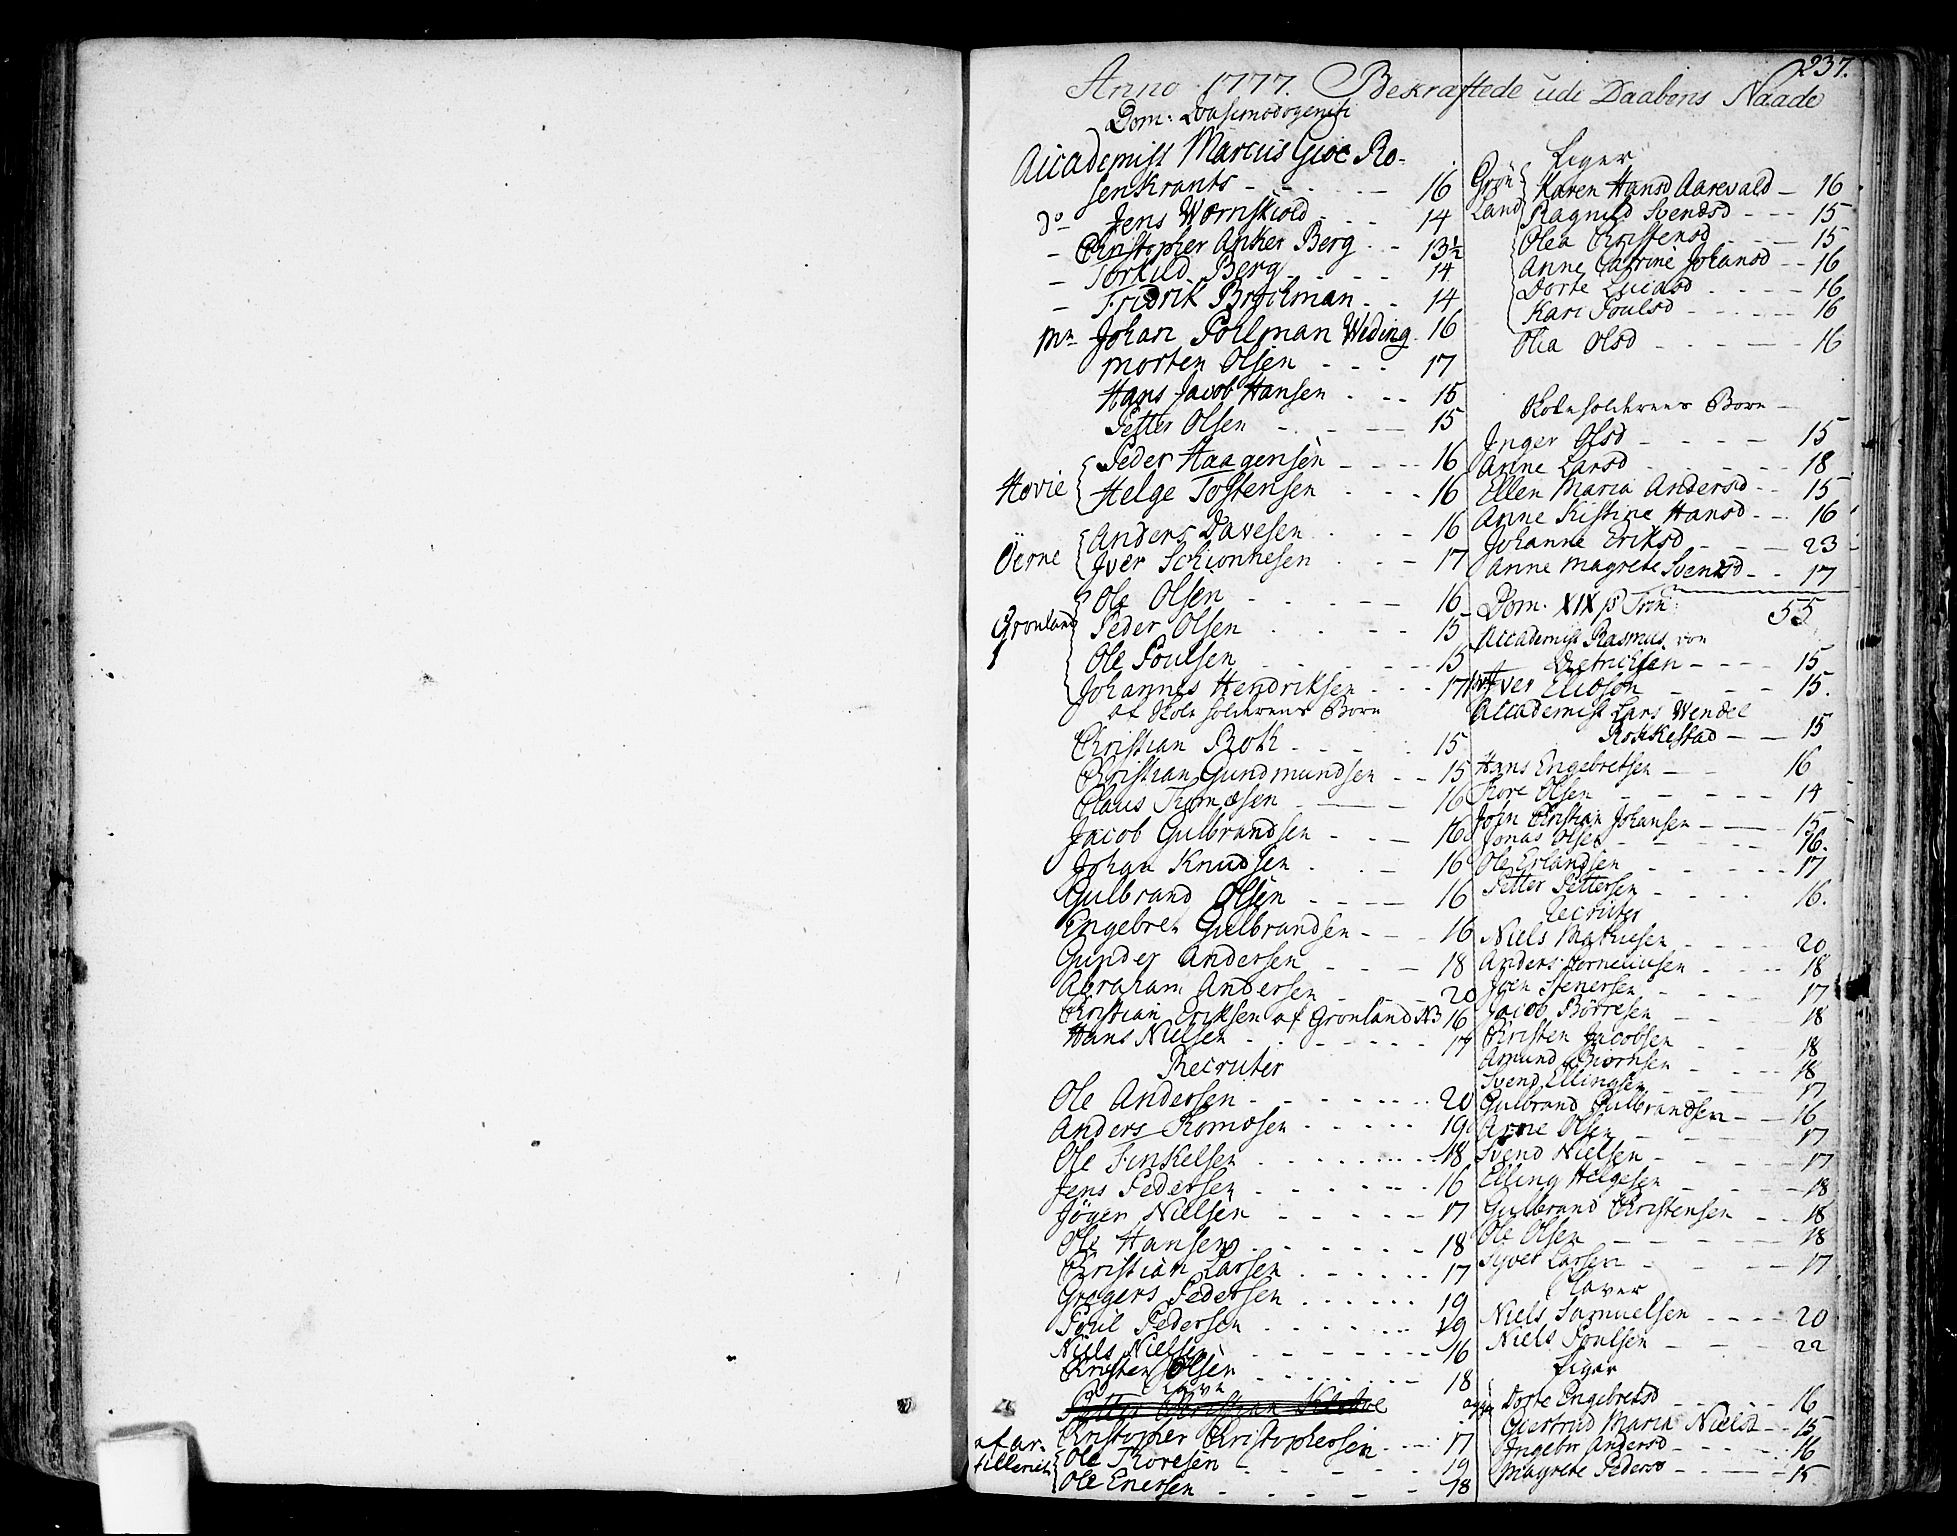 237.
Anno 1777. Bekræftede udi Daabens Naade
Dom: Qvasimodogeniti
Accademist Marcus Giöe Ro-
senkrants - - - 16
do Jens Wærnskiold - - 14
- Christopher Anker Berg - - 13½
- Torkild Berg - - - - 14
- Fridrik Brockman - - 14
Mr Johan Pollman Weding 16
Morten Olsen - - - 17
Hans Jacob Hansen - - - 15
Petter Olsen - - - 15
Peder Haagensen - - - 16
Høvie Helge Tostensen - - - 16
Anders Davesen - - - 16
Öerne Iver Schionnesen - - - 17
Ole Olsen - - - 16
Grønland Peder Olsen - - - 15
Ole Poulsen - - - 15
Johannes Hendriksen - - - 17
af Skole holderens Børn
Christian Rok - - - 15
Christian Gundmundsen - - 15
Claus Thomæsen - - - 16
Jacob Gulbrandsen - - - 16
Johan Knudsen - - - 16
Gulbrand Olsen - - - 16
Engebret Gulbrandsen - - - 16
Gunder Andersen - - - 18
Abraham Andersen - - - 20
Christian Eriksen af Grønland NB 16
Hans Nielsen - - - 17
Recruter
Ole Andersen - - - 20
Anders Thomæsen - - - 19
Ole Finkelsen - - - 18
Jens Pedersen - - - 16
Jöger Nielsen - - - 17
Ole Hansen - - - 18
Christian Larsen - - - 17
Gregers Pedersen - - - 19
Poul Pedersen - - - 19
Niels Nielsen - - - 16
Christen Olsen - - - 18
Slave
Petter Christian
Christopher Christophersen - - - 17
af ar-
tilleriet Ole Thoresen - - - 19
Ole Enersen - - - 18
Piger
Grön-
land Karen Hansd Aarevald - 16
Ragnild Svendsd - - - 15
Olea Christensd - - - 15
Anne Catrine Johansd - - 16
Dorte Lucasd - - - 16
Kari Poulsd - - - 16
Olia Olsd - - - 16
Skoleholderens Børn -
Inger Olsd - - - 15
Anne Larsd - - - 18
Ellen Maria Andersd - - 15
Anne Kistine Hansd - - 16
Johanne Eriksd - - - 23
Anne Magrete Svendsd - - 17
55
Dom. XIX p Trin:
Accademist Rasmus von
Dietrichsen - - - 15
Iver Eliesön - - - 15.
Accademist Lars Wendel
Rokkestad - - 15
Hans Engebretsen - - 16
Thore Olsen - - - 14
John Christian Johansen - - - 15
Jonas Olsen - - - 16.
Ole Erlandsen - - - 17
Petter Pettersen - - - 16.
Recruter
Niels Mathiesen - - - 20
Anders Corneliusen - - - 18
Joen Stenersen - - - 17
Jacob Börresen - - - 18
Christen Jacobsen - - - 18
Amund Biørnsen - - - 18
Svend Ellingsen - - - 17
Gulbrand Gulbrandsen - - 16
Arne Olsen - - - 17
Svend Nielsen - - - 17
Elling Helgesen - - - 18
Gulbrand Christensen - - 18
Ole Olsen - - - 18
Syver Larsen - - - 17
Slaver
Niels Samuelsen - - - 20
Niels Poulsen - - - 22
Piger
Dorte Engebretsd - - - 16
Giertrud Maria Nielsd - - 15
Ingebr Andersd - - - 16
Magrete Pedersd - - - 15